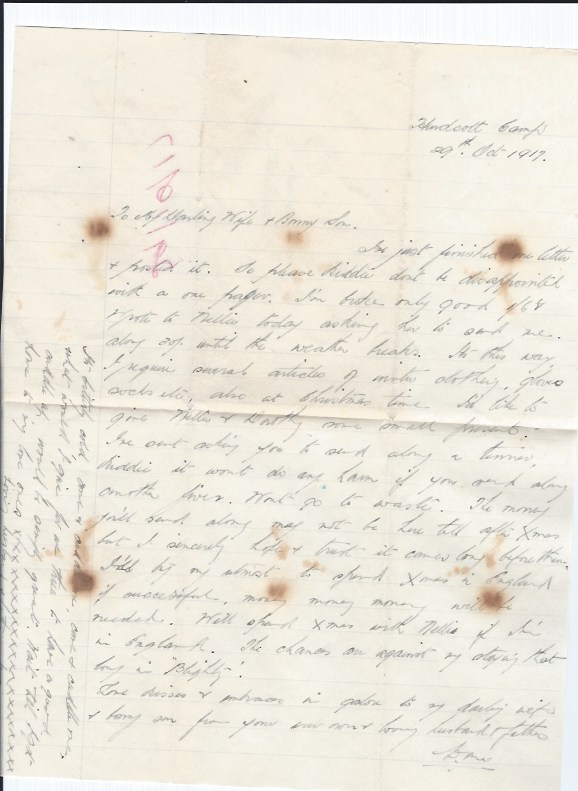 Hurdcott Camp
29th Oct 1917.
To My Darling Wife & Bonny Son.
I've just finished one letter
& posted it. So please kiddie don't be disappointed
with a one paper. I'm broke only good
Wrote to Nellie today asking her to send me
along until the weather breaks. It's this way
I require several articles of winter clothing, gloves
socks etc, also at Christmas time I'd like to
give Nellie & Dorothy some small present.
I've sent asking you to send along a
kiddie it won't do any harm if you send along
another fiver. Won't go to waste. The money
you'll send along may not be here till after Xmas
but I sincerely hope & trust it comes long before then.
I'll try my utmost to spend Xmas in England
if successful, money money money will be
needed. Will spend Xmas with Nellie if I'm
in England. The chances are against my staying that
long in 'Blighty'.
Love kisses & embraces in galore to my darling wife
& bonny son from your ever own & loving husband & father
It's bitterly cold come & come & cuddle me.
what would I give for us three to have a good
cuddle up would be
Love to my one ones xxxxxxxxxxxxxxxxxx